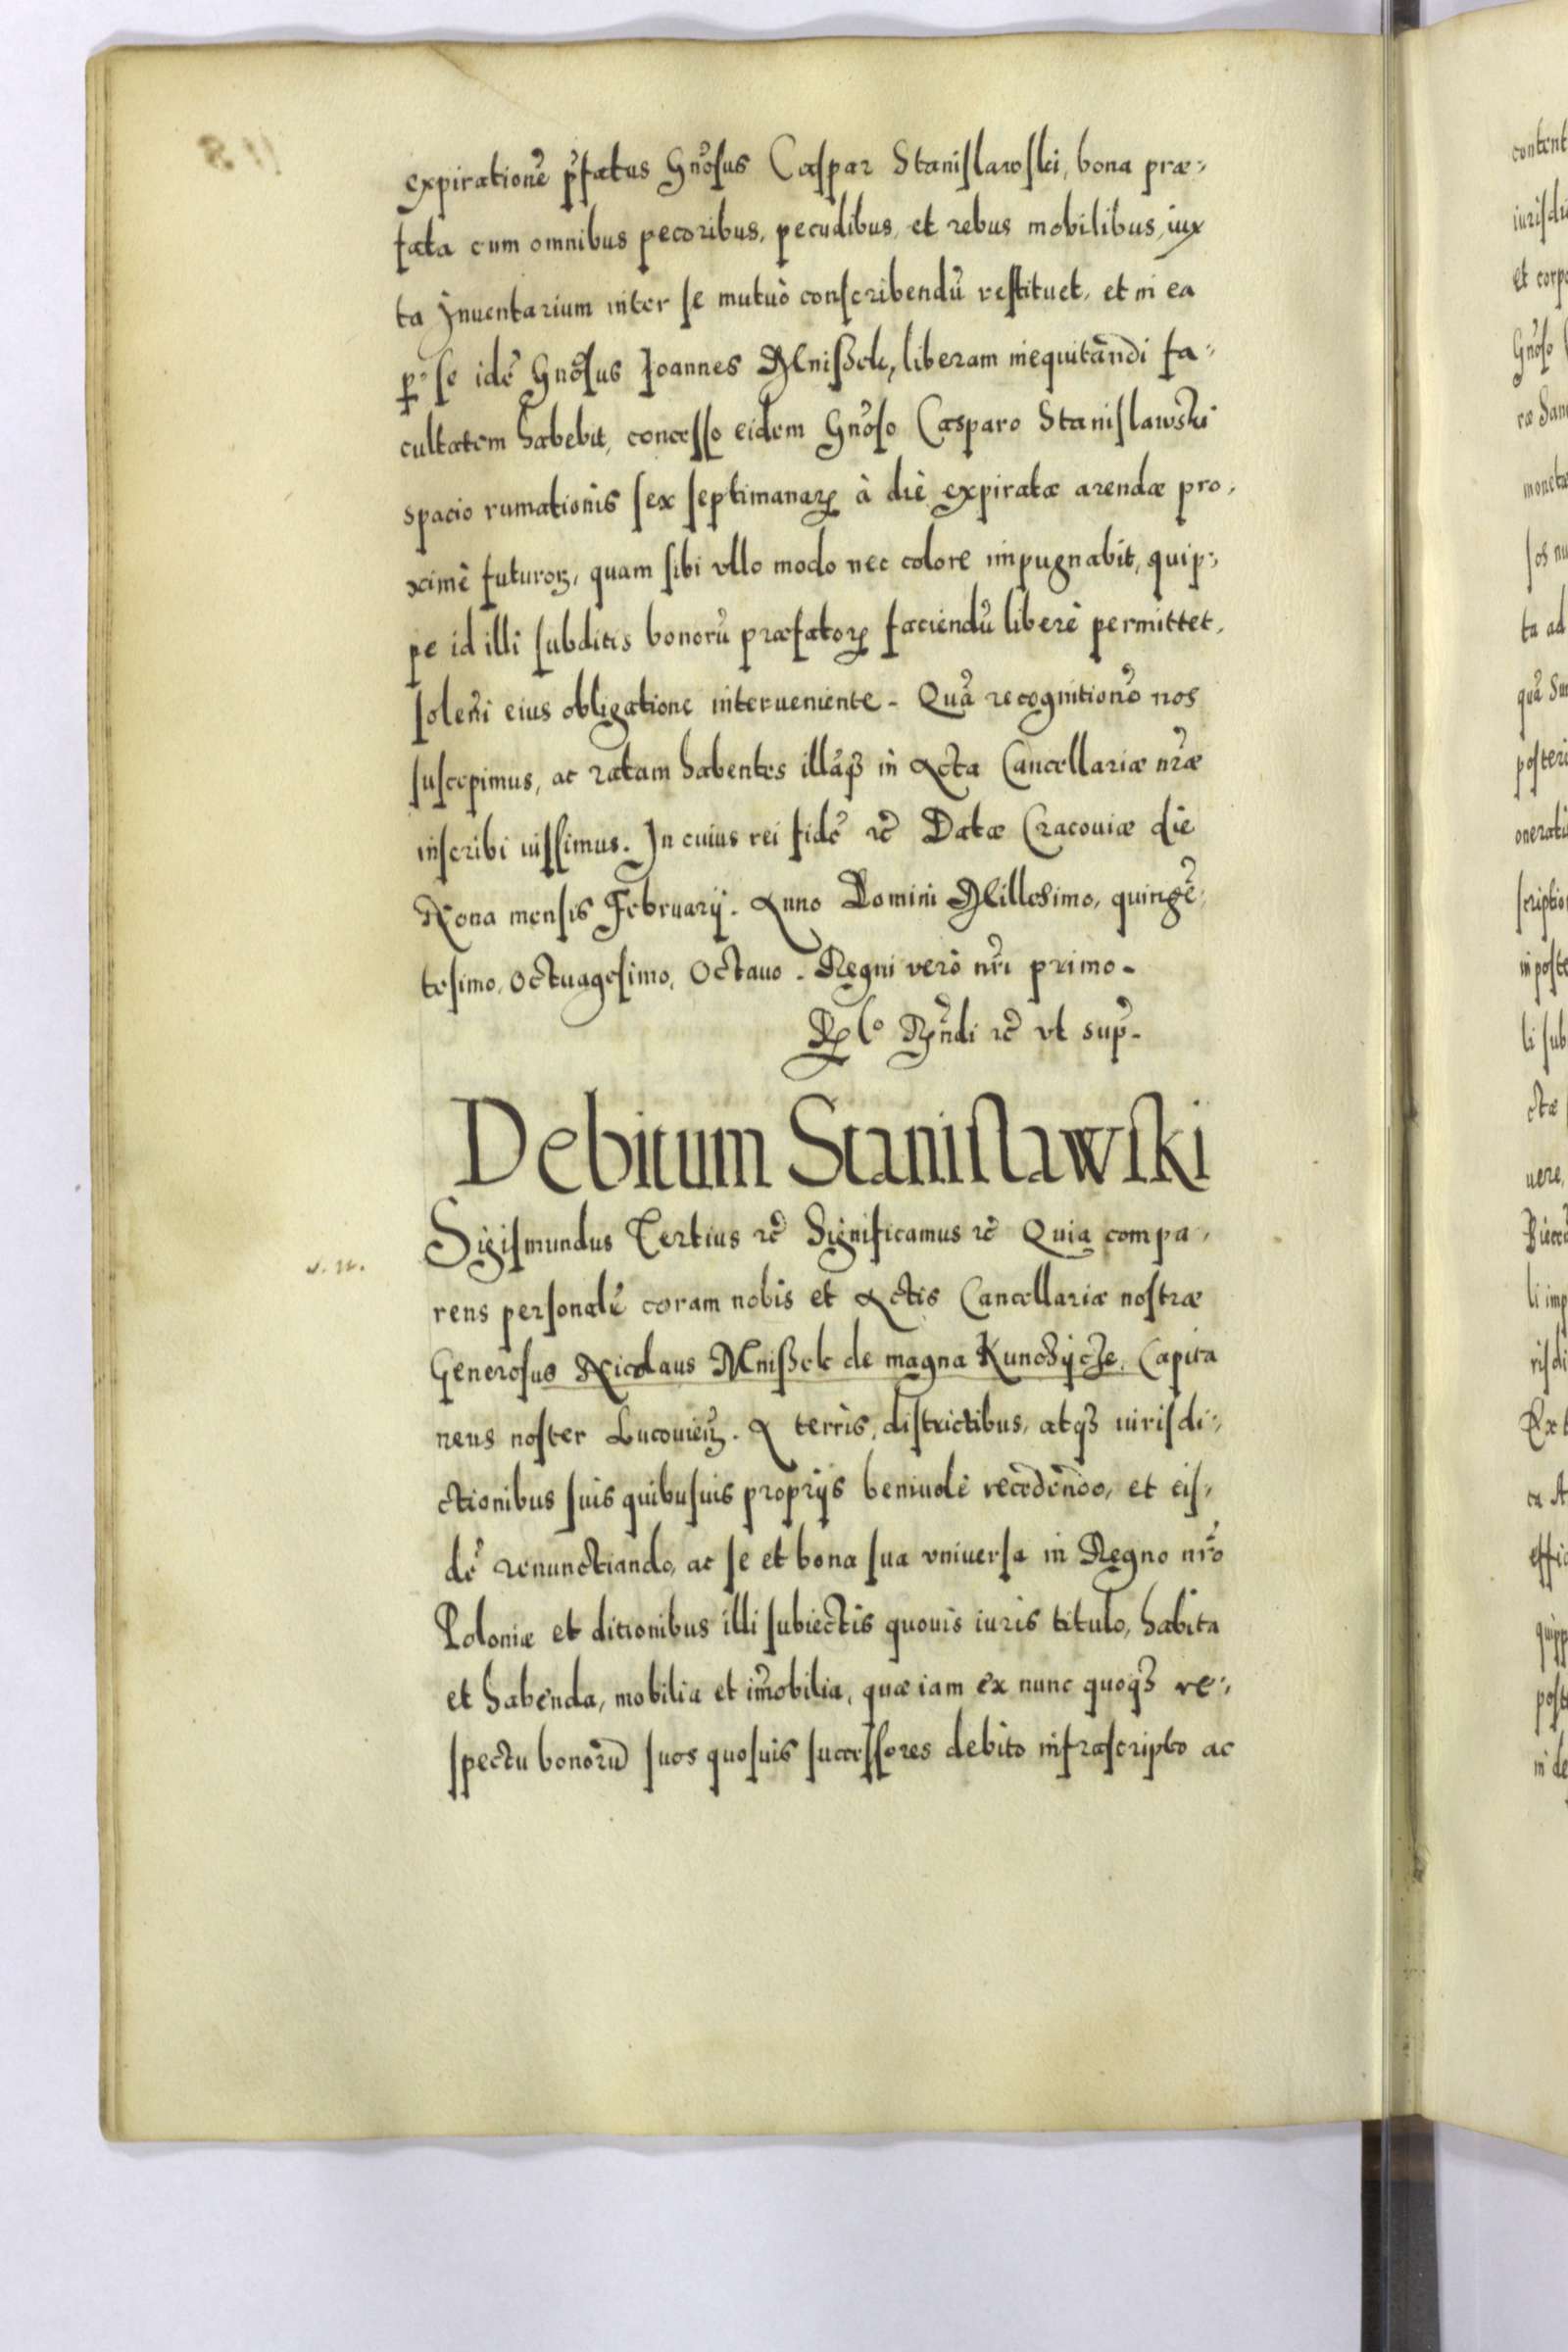 expirationē p̃fatus Gnõsus Caspar Stanislawski, bona præ-
fata cum omnibus pecoribus, pecudibus, et rebus mobilibus, iux
ta Inuentarium inter se mutuò conscribendū restituet, et in ea
per se idē Gnõsus Joannes Mnißek, liberam inequitandi fa-
cultatem habebit, concesso eidem Gnõso Casparo Stanislawski
spacio rumationis sex septimanarꝝ à die expiratæ arendæ pro-
ximè futurorꝝ, quam sibi vllo modo nec colore impugnabit, quip-
pe id illi subditis bonorū præfatorꝝ faciendū liberè permittet,
soleñi eius obligatione interueniente. Quā recognitionē nos
suscepimus, ac ratam habentes illāqꝫ in Acta Cancellariæ nr̃æ
inscribi iussimus. In cuius rei fidē etc̃ Datæ Cracouiæ die
Nona mensis February. Anno Domini Millesimo, quingē
tesimo, Octuagesimo, Octauo. Regni verò nr̃i primo.
Rꝝ Co Rṽndi etc̃ vt sup̃.
Debitum Stanislawski
Sigismundus Tertius etc̃ Significamus etc̃ Quia compa-
rens personalē coram nobis et Actis Cancellariæ nostræ
Generosus Nicolaus Mnißek de magna Kunchycze, Capita
neus noster Lucouien̄. A terris, districtibus, atqꝫ iurisdi-
ctionibus suis quibusuis proprijs beniuolè recedendo, et eis-
dē renunctiando, ac se et bona sua vniuersa in Regno nr̃o
Poloniæ et ditionibus illi subiectis quouis iuris titulo, habita
et habenda, mobilia et im̃obilia, quæ iam ex nunc quoqꝫ re-
spectu bonorū suos quosuis successores debito infrascripto ac